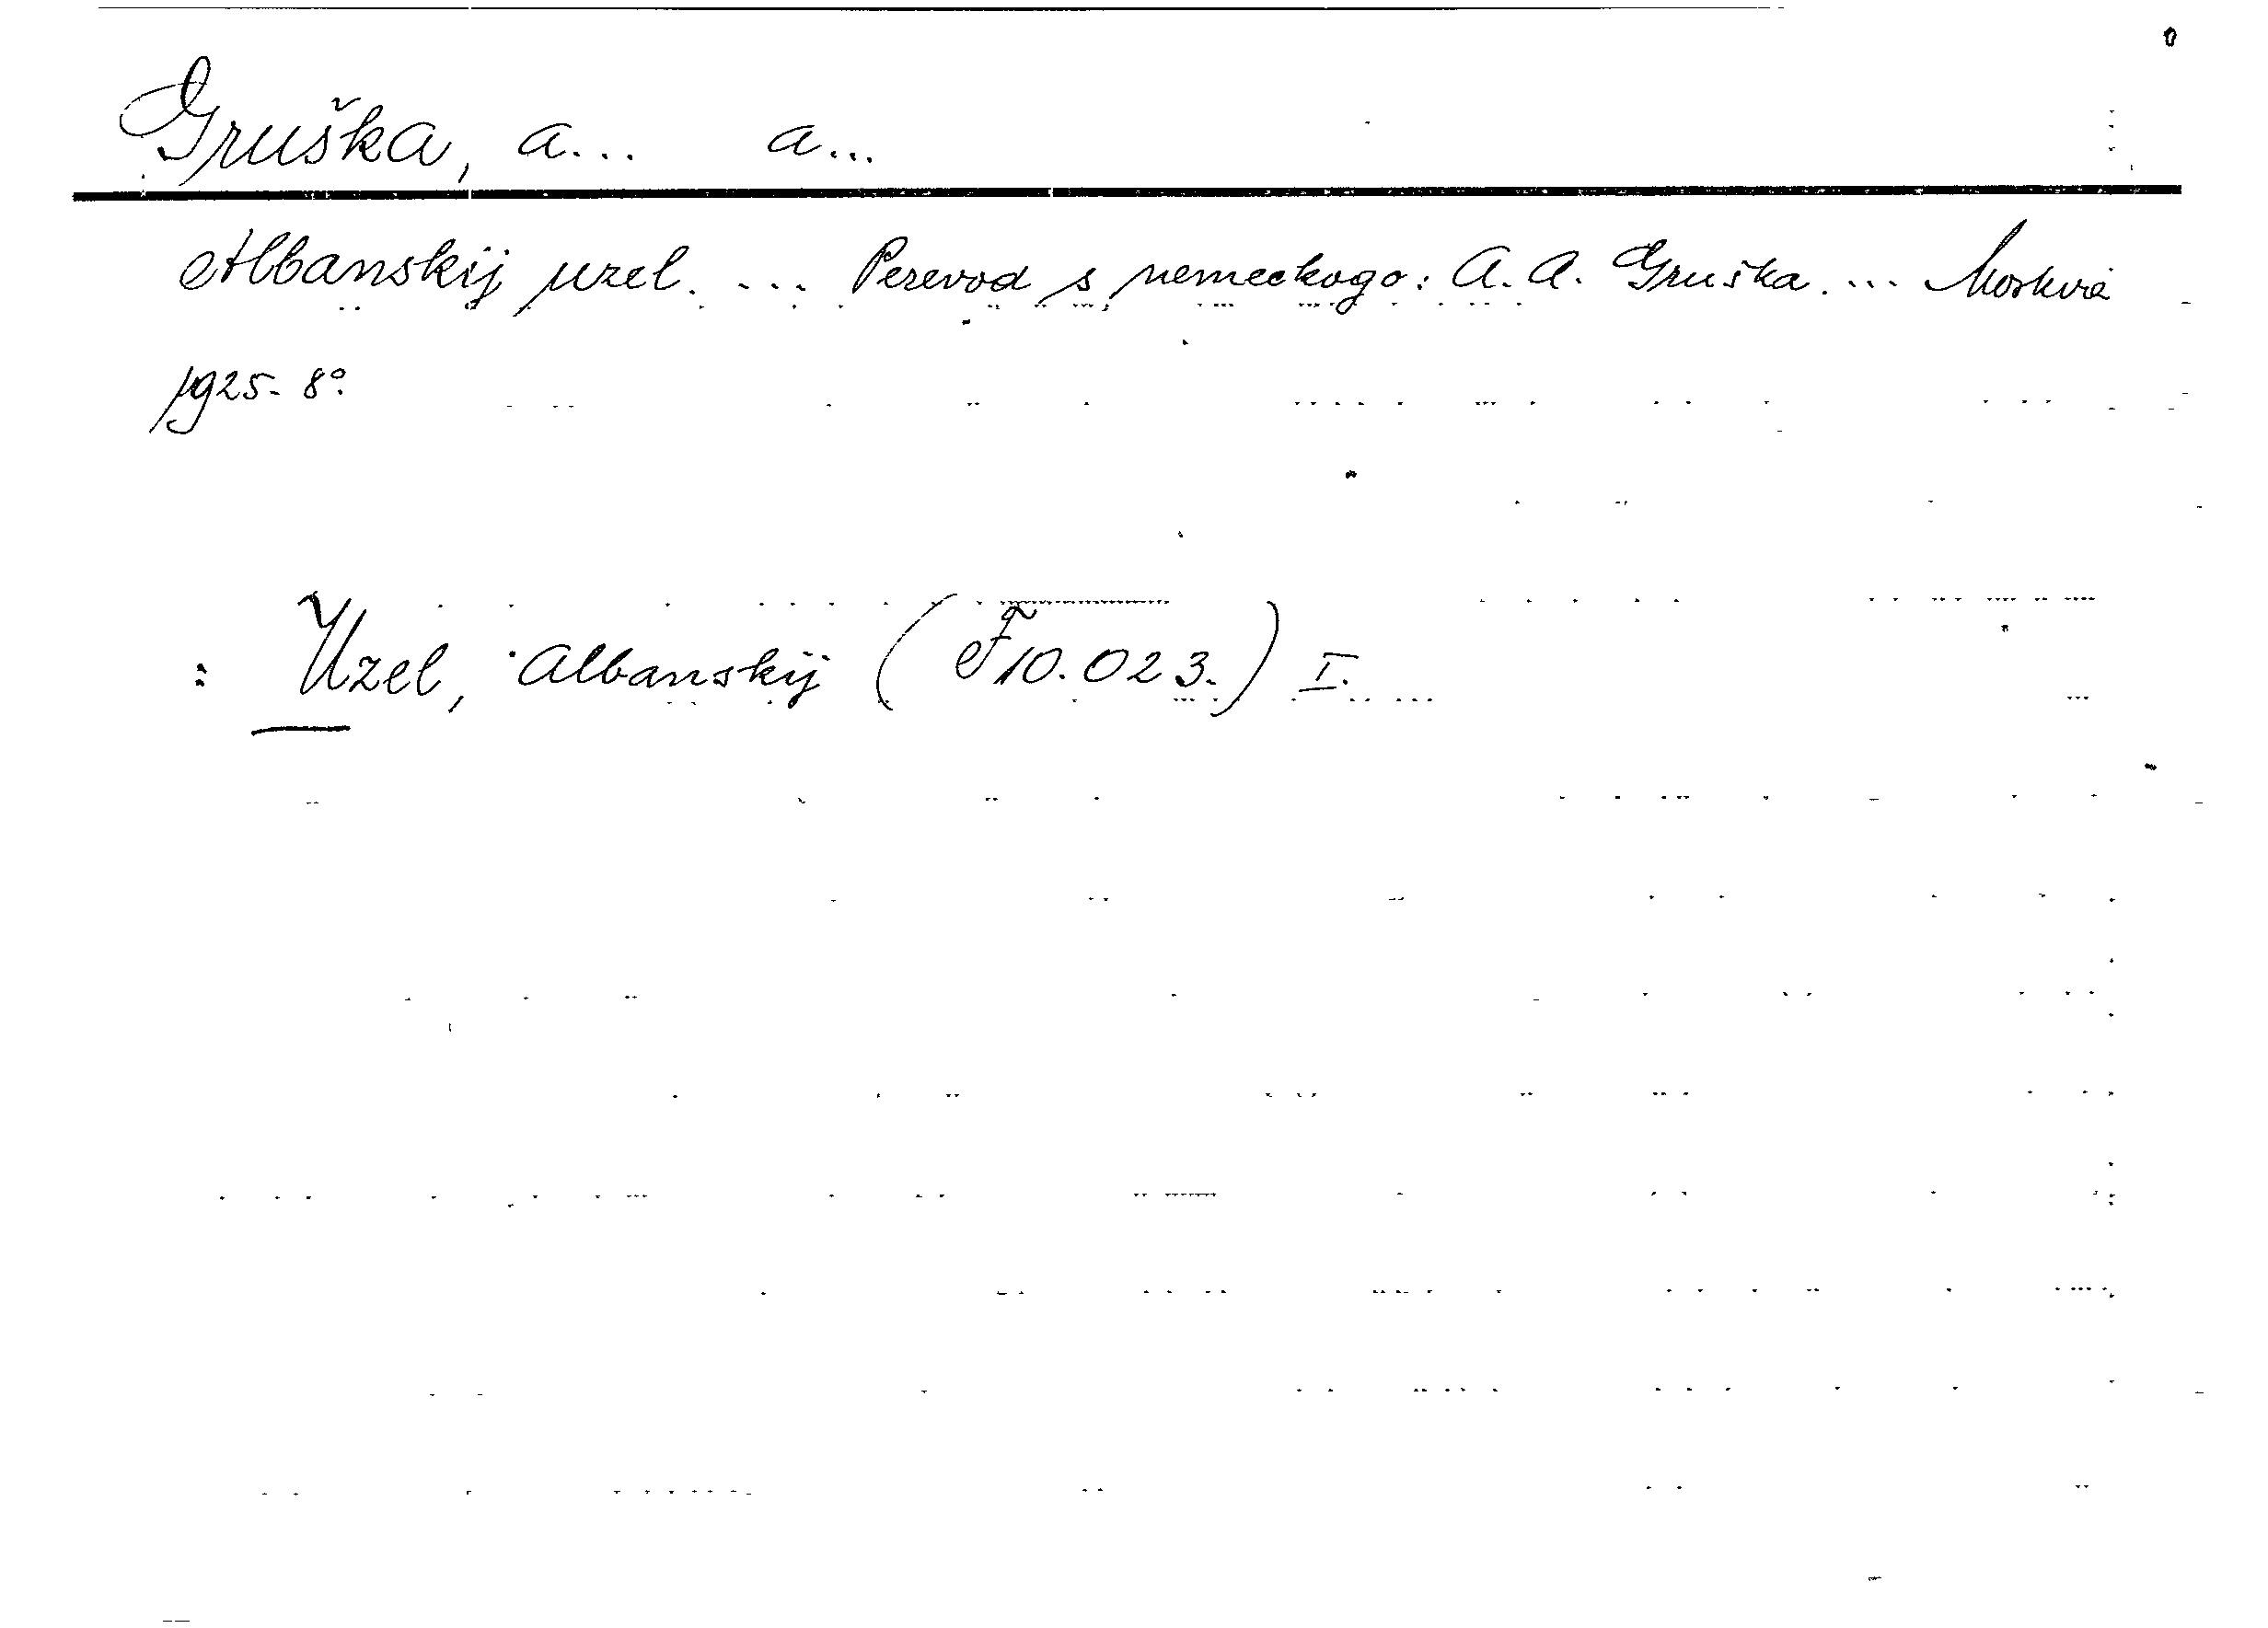 Gruška, A... A...
Albanskij uzel. ... Perevod s nemeckogo: A. A. Gruška. ... Moskva
1925. 8°.
: Uzel, Albanskij (F10.023.) I.